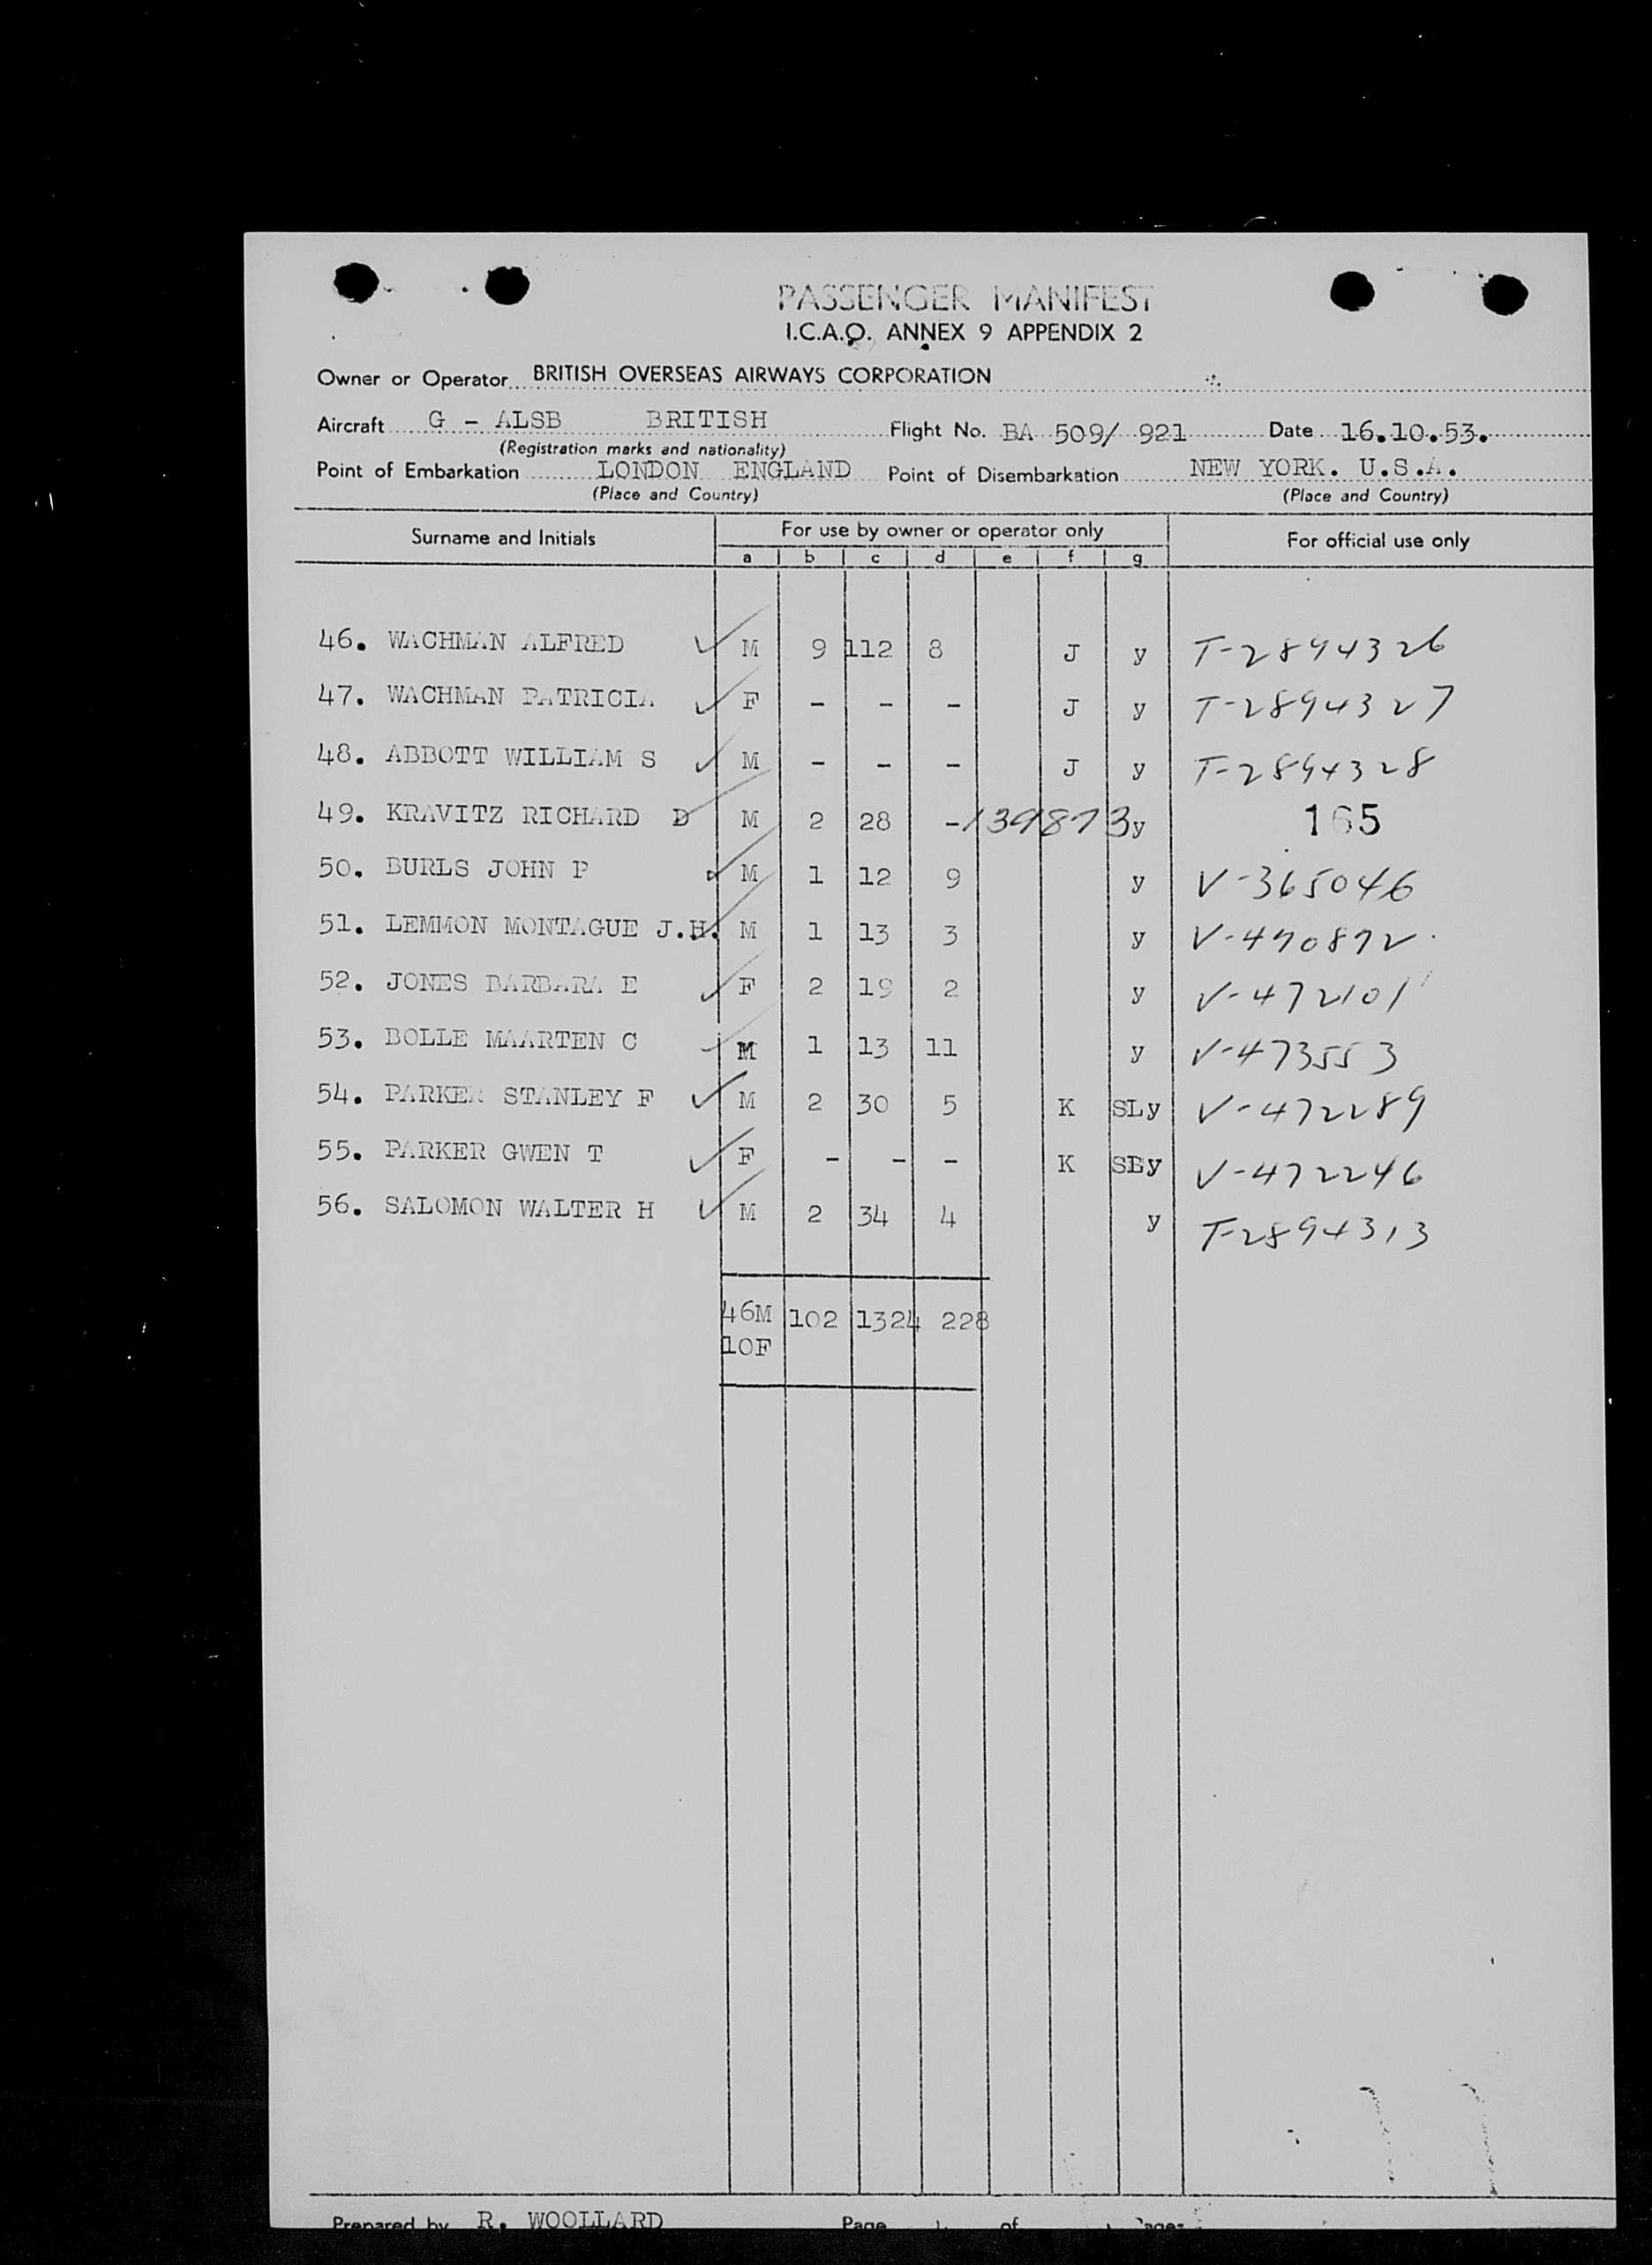 PASSENGER MANIFEST
I.C.A.O. ANNEX 9 APPENDIX 2
Owner or Operator BRITISH OVERSEAS AIRWAYS CORPORATION
Aircraft G - ALSB BRITISH Flight No. BA 509/ 921 Date 16.10.53.
(Registration marks and nationality)
Point of Embarkation LONDON ENGLAND Point of Disembarkation NEW YORK. U.S.A.
(Place and Country) (Place and Country)
Surname and Initials For use by owner or operator only For official use only
a b c d e f g
46. WACHMAN ALFRED M 9 112 8 J y T-2894326
47. WACHMAN PATRICIA F - - - J y T-2894327
48. ABBOTT WILLIAM S M - - - J y T-2894328
49. KRAVITZ RICHARD D M 2 28 - 139873 y 165
50. BURLS JOHN P M 1 12 9 y V-365046
51. LEMMON MONTAGUE J.H. M 1 13 3 y V-470872
52. JONES BARBARA E F 2 19 2 y V-472101
53. BOLLE MAARTEN C M 1 13 11 y V-473553
54. PARKER STANLEY F M 2 30 5 K SLy V-472289
55. PARKER GWEN T F - - - K y V-472246
56. SALOMON WALTER H M 2 34 4 y T-2894313
46M 102 1324 228
10F
Prepared by R. WOOLLARD Page of Pages